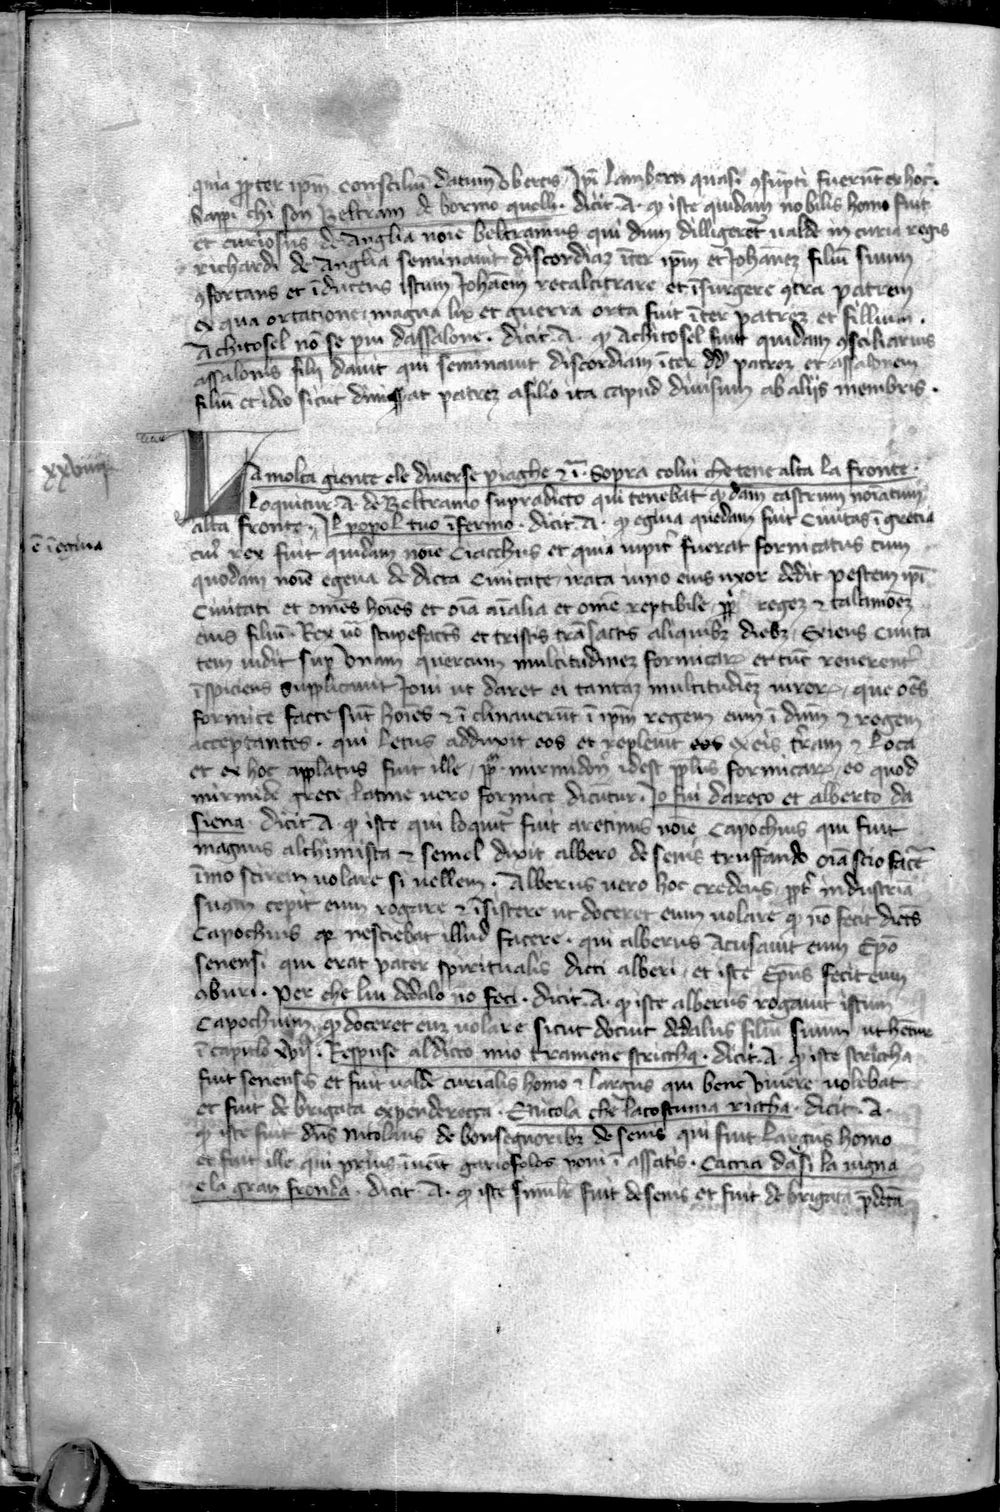 quia ꝓpter ipm̄ consciliū datum ubertis, Ipi Lamberti quasi ꝯsūpti fuerūt ex hoc.
sappi chi son Beltram de bormo quelli. dicit .A. ꝙ iste quidam nobilis homo fuit
et curiosus de Anglia noīe beltramus qui dum dilligeret᷑ ualde in curia regis
richardi de Anglia seminauit discordiaꝫ īter ipm̄ et Johāneꝫ filiū suum
ꝯfortans et īducens istum Johāēm recalcitrare et īsurgere ꝯtra patrem
ex qua ortatione magna lix et guerra orta fuit īter patreꝫ et fillium.
Achitofel nō se piu dassalone. dicit .A. ꝙ Achitofel fuit quidam ꝯsciliarius
assalonis filij dauit qui seminauit discordiam īter dd̄ patreꝫ et assalonem
filiū et ideo sicut diuisat patreꝫ a filio ita capud diuisum ab aliis membris.
xxviiij
La molta giente ele diuerse piaghe &c̄. Sopra colui che tene alta la fronte.
Loquitur .A. de Beltramo supradicto qui tenebat qḏdam castrum noīatum
alta fronte. Il popol tuo īfermo. dicit .A. ꝙ egiua quedam fuit Ciuitas ī grecia
ē ī egiua
cuiꝰ rex fuit quidam noīe Ciacchus et quia iupit̄ fuerat fornicatus cum
quodam noīe egeua de dicta Ciuitate, irata iuno eius uxor dedit pestem ipī
Ciuitati et om̄es hoīes et oīa aīalia et om̄e reptibile regeꝫ & talamoēꝫ
eius filiū. Rex uō stupefactꝰ et tristis trāsactis aliquibꝫ diebꝫ, Exiens Ciuita
tem uidit sup̱ unam quercum multitudineꝫ formicaꝝ et tūc reuerent᷑
īspiciens supplicauit Joui ut daret ei tantaꝫ multitudīeꝫ uiroꝝ, que oēs
formice facte sūt hoīes & īclinauerūt ī ipm̄ regem eum ī dūm & regem
acceptantes. qui letus adduxit eos et repleuit eos ex eis t̄ram & loca
et ex hoc appellatus fuit ille, mirmidoꝝ idest ppl̄us formicaꝝ, eo quod
mirmide grece latine uero formice dicūtur. Io fui dareço et alberto da
siena. dicit .A. ꝙ iste qui loquit᷑ fuit aretinus noīe Capochius qui fuit
magnus alchimista & semel dixit albero de senis truffando oīa scio fac̄e
īmo scirem uolare si uellem. Alberus uero hoc credens, ꝓpt̄ industria
suam cepit eum rogare & īsistere ut doceret eum uolare qḏ nō fecit dictꝰ
Capochius ꝙ nesciebat illud facere. qui alberus Acusauit eum Ep̄o
senensi qui erat pater spiritualis dicti alberi, et iste Ep̄us fecit eum
aburi. Per che lui dedalo nō feci. dicit .A. ꝙ iste alberus rogauit istum
Capochium, qḏ doceret euꝫ uolare sicut docuit dedalus filiū suum ut hētur
ī capitulo xvij. Respuse al dicto mio tramene stricchꝫ. dicit .A. ꝙ iste striccha
fuit senensis et fuit ualde curialis homo & largus qui bene uiuere uolebat
et fuit de brigata expenderoçça. Enicola che lacostuma riccha. dicit .A.
ꝙ iste fuit dn̄s Nicolaus de bonsegnoribꝫ de senis qui fuit largus homo
et fuit ille qui prius īuēit gariofolos poni ī assatis. Caccia dasi la uigna
e la gran fronda. dicit .A. ꝙ iste simil̄r fuit de senis et fuit de brigata p̄dc̄ā